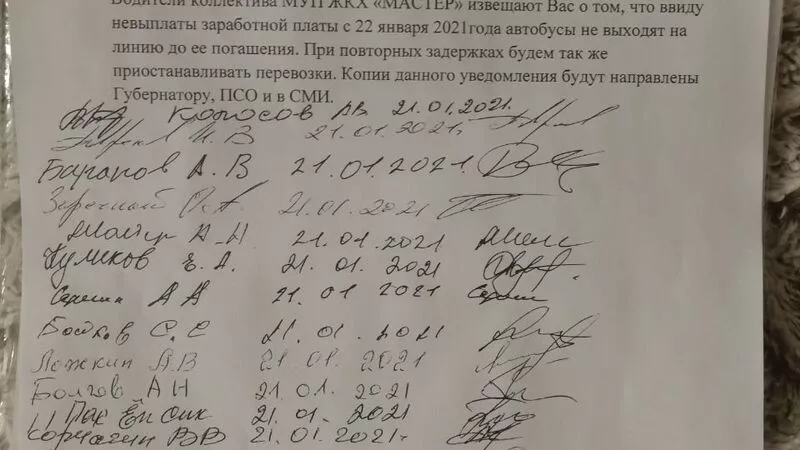 Водители коллектива МУП ЖКХ «МАСТЕР» извещают Вас о том, что ввиду
невыплаты заработной платы с 22 января 2021года автобусы не выходят на
линию до ее погашения. При повторных задержках будем так же
приостанавливать перевозки. Копии данного уведомления будут направлены
Губернатору, ПСО и в СМИ.
Колосов АВ. 21.01.2021.
И. В 21.01.2021г.
Баранов А. В 21.01.2021.
21.01.2021
А-Н 21.01.2021
Куликов Е. А. 21.01.2021
А А 21.01 2021
С. С 21.01.2021
Ложкин А.В 21.01.2021
Болгов А Н 21.01.2021
Пак Ен Сик 21.01.2021
Корчагин ВВ 21.01.2021г